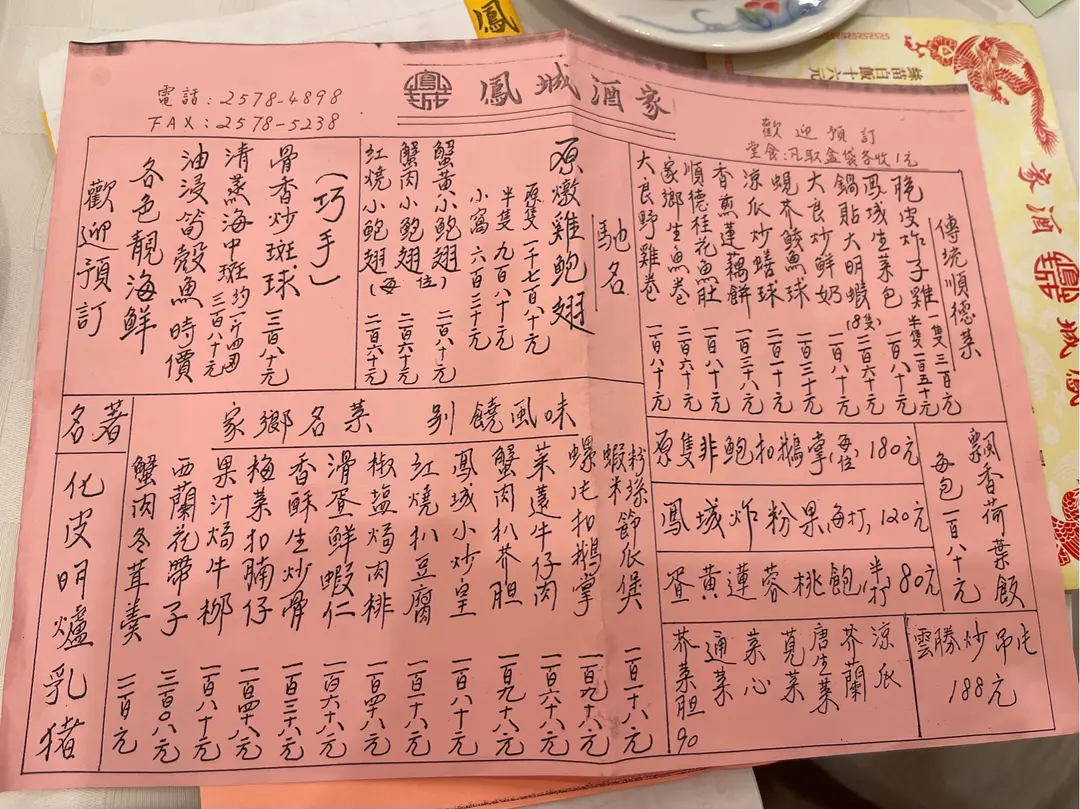 鳳城酒家
電話:2578-4898
FAX:2578-5238
歡迎預訂
堂食:凡取盒袋各收1元
傳統順德菜
脆皮炸子雞 一隻三百元 半隻一百五十元
鳳城生菜包 一百八十元
鍋貼大明蝦(8隻) 二百六十元
大良炒鮮奶 一百八十元
蜆芥鯪魚球 一百三十元
涼瓜炒蟮球 二百一十元
香煎蓮藕餅 一百三十八元
順德桂花魚肚 一百八十元
家鄉生魚卷 二百六十元
大良野雞卷 一百八十元
馳名
原燉雞鮑翅
原隻一千七百八十元
半隻九百八十元
小窩六百二十元
蟹黃小鮑翅 二百八十元
蟹肉小鮑翅 (每位) 二百六十元
紅燒小鮑翅 二百六十元
(巧手)
骨香炒斑球 三百八十元
清蒸海中斑 約一斤四両 三百八十元
油浸筍殼魚 時價
各色靚海鮮
歡迎預訂
名著
化皮明爐乳猪
家鄉名菜 別饒風味
粉絲蝦米節瓜煲 一百一十八元
螺片扣鵝掌 一百九十八元
菜薳牛仔肉 一百六十八元
蟹肉扒芥胆 一百九十八元
鳳城小炒皇 一百八十元
紅燒扒豆腐 一百一十八元
椒塩焗肉排 一百四十八元
滑蛋鮮蝦仁 一百六十八元
香酥生炒骨 一百三十八元
梅菜扣腩仔 一百四十八元
果汁焗牛柳 一百八十元
西蘭花帶子 三百零八元
蟹肉冬茸羹 二百元
原隻非鮑扣鵝掌(每位) 180元
鳳城炸粉果 每打, 120元
蛋黃蓮蓉桃飽 半打 80元
飄香荷葉飯
每包一百八十元
涼瓜
芥蘭
唐生菜
莧菜
菜心
通菜
芥菜胆
90
雲勝炒吊片
188元
鳳
菜苗白飯十六元
鳳城酒家